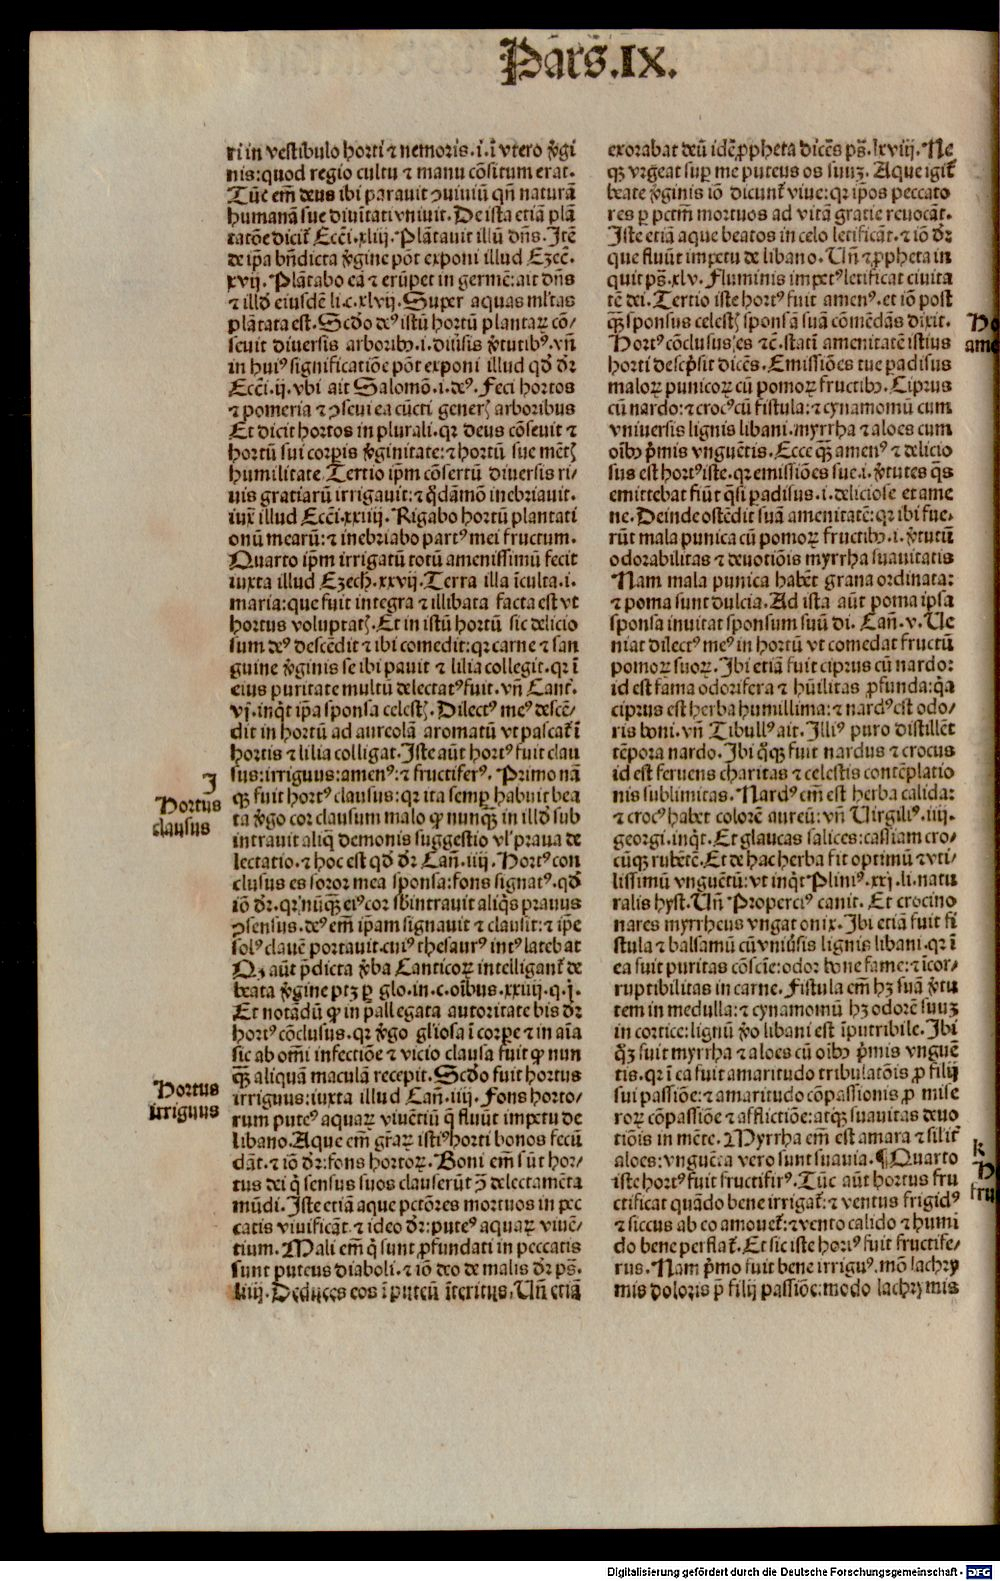 Pars.IX.
ri in vestibulo horti ⁊ nemoris.i.ĩ vtero v̾gi
nis:quod regio cultu ⁊ manu cõsitum erat.
Tũc em̃ deus ibi parauit ꝯuiuiũ qñ naturã
humanã sue diuĩtati vniuit. De ista etiã plã
tatõe dicit᷑ Ecc̃i.xliij. Plãtauit illũ dñs. Itẽ
de ip̃a bñdicta v̾gine põt exponi illud Ezec̃.
xvij. Plãtabo eã ⁊ erũpet in germẽ:ait dñs
⁊ illd̾ eiusdẽ li.c.xlvij. Super aquas ml̾tas
plãtata est. Scd̾o deꝰ istũ hortũ plantaꝝ cõ/
seuit diuersis arboribꝰ.i.diũsis v̾tutibꝰ. vñ
in huiꝰ significatiõe põt exponi illud qd̾ dr̃
Ecc̃i.ij. vbi ait Salomõ.i.deꝰ. Feci hortos
⁊ pomeria ⁊ ꝯseui ea cũcti generꝭ arboribus
Et dicit hortos in plurali. qꝛ deus cõseuit ⁊
hortũ sui corꝑis v̾ginitate:⁊ hortũ sue mẽtꝭ
humilitate. Tertio ip̃m cõsertũ diuersis ri/
uis gratiarũ irrigauit:⁊ q̊dãmõ inebriauit.
iux̃ illud Ecc̃i.xxiiij. Rigabo hortũ plantati
onũ mearũ:⁊ inebriabo partꝰ mei fructum.
Quarto ip̃m irrigatũ totũ amenissimũ fecit
iuxta illud Ezech̃.xxvij. Terra illa ĩculta.i.
maria:que fuit integra ⁊ illibata facta est vt
hortus voluptatꝭ. Et in istũ hortũ sic delicio
sum deꝰ descẽdit ⁊ ibi comedit:qꝛ carne ⁊ san
guine v̾ginis se ibi pauit ⁊ lilia collegit. qꝛ ĩ
eius puritate multũ delectatꝰ fuit. vñ Cant᷑.
vj. inq̇t ip̃a sponsa celestꝭ. Dilectꝰ meꝰ descẽ/
dit in hortũ ad aureolã aromatũ vt pascat᷑ ĩ
hortis ⁊ lilia colligat. Iste aũt hortꝰ fuit clau
sus:irriguus:amenꝰ:⁊ fructiferꝰ. Primo nã
qꝫ fuit hortꝰ clausus:qꝛ ita semꝑ habuit bea
ta v̾go cor clausum malo ꝙ nunqꝫ̃ in illd̾ sub
intrauit aliq̃ demonis suggestio vl̾ praua de
lectatio.⁊ hoc est qd̾ dr̃ Cañ.iiij. Hortꝰ con
clusus es soror mea sponsa:fons signatꝰ. qd̾
iõ dr̃. qꝛ nũqꝫ̃ eiꝰ cor sb̾intrauit aliq̇s prauus
ꝯsensus. deꝰ em̃ ip̃am signauit ⁊ clausit:⁊ ip̃e
solꝰ clauẽ portauit.cuiꝰ thesaurꝰ intꝰ latebat
Qꝫ aũt p̃dicta v̾ba Canticoꝝ intelligant᷑ de
beata v̾gine ptꝫ ꝑ glo.in.c.oĩbus.xxiiij.q.j.
Et notãdũ ꝙ in pallegata autoritate bis dr̃
hortꝰ cõclusus. qꝛ v̾go gl̾iosa ĩ corꝑe ⁊ in aĩa
sic ab om̃i infectiõe ⁊ vicio clausa fuit ꝙ nun
qꝫ̃ aliquã maculã recepit. Scd̾o fuit hortus
irriguus:iuxta illud Cañ.iiij. Fons horto/
rum puteꝰ aquaꝝ viuẽtiũ q̃ fluũt impetu de
libano. Aque em̃ gr̃aꝝ istiꝰ horti bonos fecũ
dãt.⁊ iõ dr̃:fons hortoꝝ. Boni em̃ sũt hor/
tus dei q̇ sensus suos clauserũt ꝯ̃ delectamẽta
mũdi. Iste etiã aque pctõres mortuos in pec
catis viuificãt.⁊ ideo dr̃:puteꝰ aquaꝝ viuẽ/
tium. Mali em̃ q̇ sunt ꝓfundati in peccatis
sunt puteus diaboli.⁊ iõ deo de malis dr̃ ps̃.
liiij. Deduces eos ĩ puteũ ĩteritus. Uñ etiã
J
Hortus
clausus
Hortus
irriguus
exorabat deũ idẽ ꝓpheta dicẽs ps̃.lxviij. Ne
qꝫ vrgeat suꝑ me puteus os suuꝫ. Aque igit᷑
beate v̾ginis iõ dicunt᷑ viue:qꝛ ip̃os peccato
res ꝑ pctm̃ mortuos ad vitã gratie reuocãt.
Iste etiã aque beatos in celo letificãt.⁊ iõ dr̃
que fluũt impetu de libano. Uñ ⁊ ꝓpheta in
quit ps̃.xlv. Fluminis impetꝰ letificat ciuita
tẽ dei. Tertio iste hortꝰ fuit amenꝰ.et iõ post
qꝫ̃ sponsus celestꝭ sponsã suã cõmẽdãs dixit.
Hortꝰ cõclusus es ⁊c̃. statĩ amenitatẽ istius
horti descp̾sit dicẽs. Emissiões tue paradisus
maloꝝ punicoꝝ cũ pomoꝝ fructibꝰ. Ciprus
cũ nardo:⁊ crocꝰ cũ fistula:⁊ cynamomũ cum
vniuersis lignis libani.myrrha ⁊ aloes cum
oĩbꝰ p̾mis vnguẽtis. Ecce qꝫ̃ amenꝰ ⁊ delicio
sus est hortꝰ iste. qꝛ emissiões sue.i. v̾tutes q̃s
emittebat fiũt q̃si ꝑadisus.i.deliciose et ame
ne. Deinde ostẽdit suã amenitatẽ:qꝛ ibi fue/
rũt mala punica cũ pomoꝝ fructibꝰ.i. v̾tutũ
odorabilitas ⁊ deuotiõis myrrha suauitatis
Nam mala punica habẽt grana ordinata:
⁊ poma sunt dulcia. Ad ista aũt poma ipsa
sponsa inuitat sponsum suũ di. Cañ.v. Ue
niat dilectꝰ meꝰ in hortũ vt comedat fructũ
pomoꝝ suoꝝ. Ibi etiã fuit ciprus cũ nardo:
id est fama odorifera ⁊ hũilitas ꝓfunda:q̇a
ciprus est herba humillima:⁊ nardꝰ est odo/
ris boni. vñ Tibullꝰ ait. Illiꝰ puro distillẽt
tẽpora nardo. Ibi q̊qꝫ fuit nardus ⁊ crocus
id est feruens charitas ⁊ celestis contẽplatio
nis sublimitas. Nardꝰ em̃ est herba calida:
⁊ crocꝰ habet colorẽ aureũ:vñ Uirgiliꝰ.iiij.
georgi.inq̇t. Et glaucas salices:cassiam cro/
cũqꝫ rubẽtẽ. Et de hac herba fit optimũ ⁊ vti/
lissimũ vnguẽtũ:vt inq̇t Pliniꝰ.xxj.li.natu
ralis hyst. Uñ Properciꝰ canit. Et crocino
nares myrrheus vngat onix. Ibi etiã fuit fi
stula ⁊ balsamũ cũ vniũsis lignis libani. qꝛ ĩ
ea fuit puritas cõsciẽ:odor bone fame:⁊ ĩcor/
ruptibilitas in carne. Fistula em̃ hꝫ suã v̾tu
tem in medulla:⁊ cynamomũ hꝫ odorẽ suuꝫ
in cortice:lignũ v̾o libani est ĩputribile. Ibi
q̊ꝫ fuit myrrha ⁊ aloes cũ oĩbꝰ p̾mis vnguẽ
tis. qꝛ ĩ ea fuit amaritudo tribulatõis ꝓ filij
sui passiõe:⁊ amaritudo cõpassionis ꝓ mise
roꝝ cõpassiõe ⁊ afflictiõe:atqꝫ suauitas deuo
tiõis in mẽte. Myrrha em̃ est amara ⁊ sil̾it᷑
aloes:vnguẽta vero sunt suauia. ¶Quarto
iste hortꝰ fuit fructifirꝰ. Tũc aũt hortus fru
ctificat quãdo bene irrigat᷑:⁊ ventus frigidꝰ
⁊ siccus ab eo amouet᷑:⁊ vento calido ⁊ humi
do bene perflat᷑. Et sic iste hortꝰ fuit fructife/
rus. Nam p̾mo fuit bene irriguꝰ. mõ lachry
mis doloris p̃ filij passiõe:modo lachrymis
Ho
ame
k
H
fru
Digitalisierung gefördert durch die Deutsche Forschungsgemeinschaft - DFG